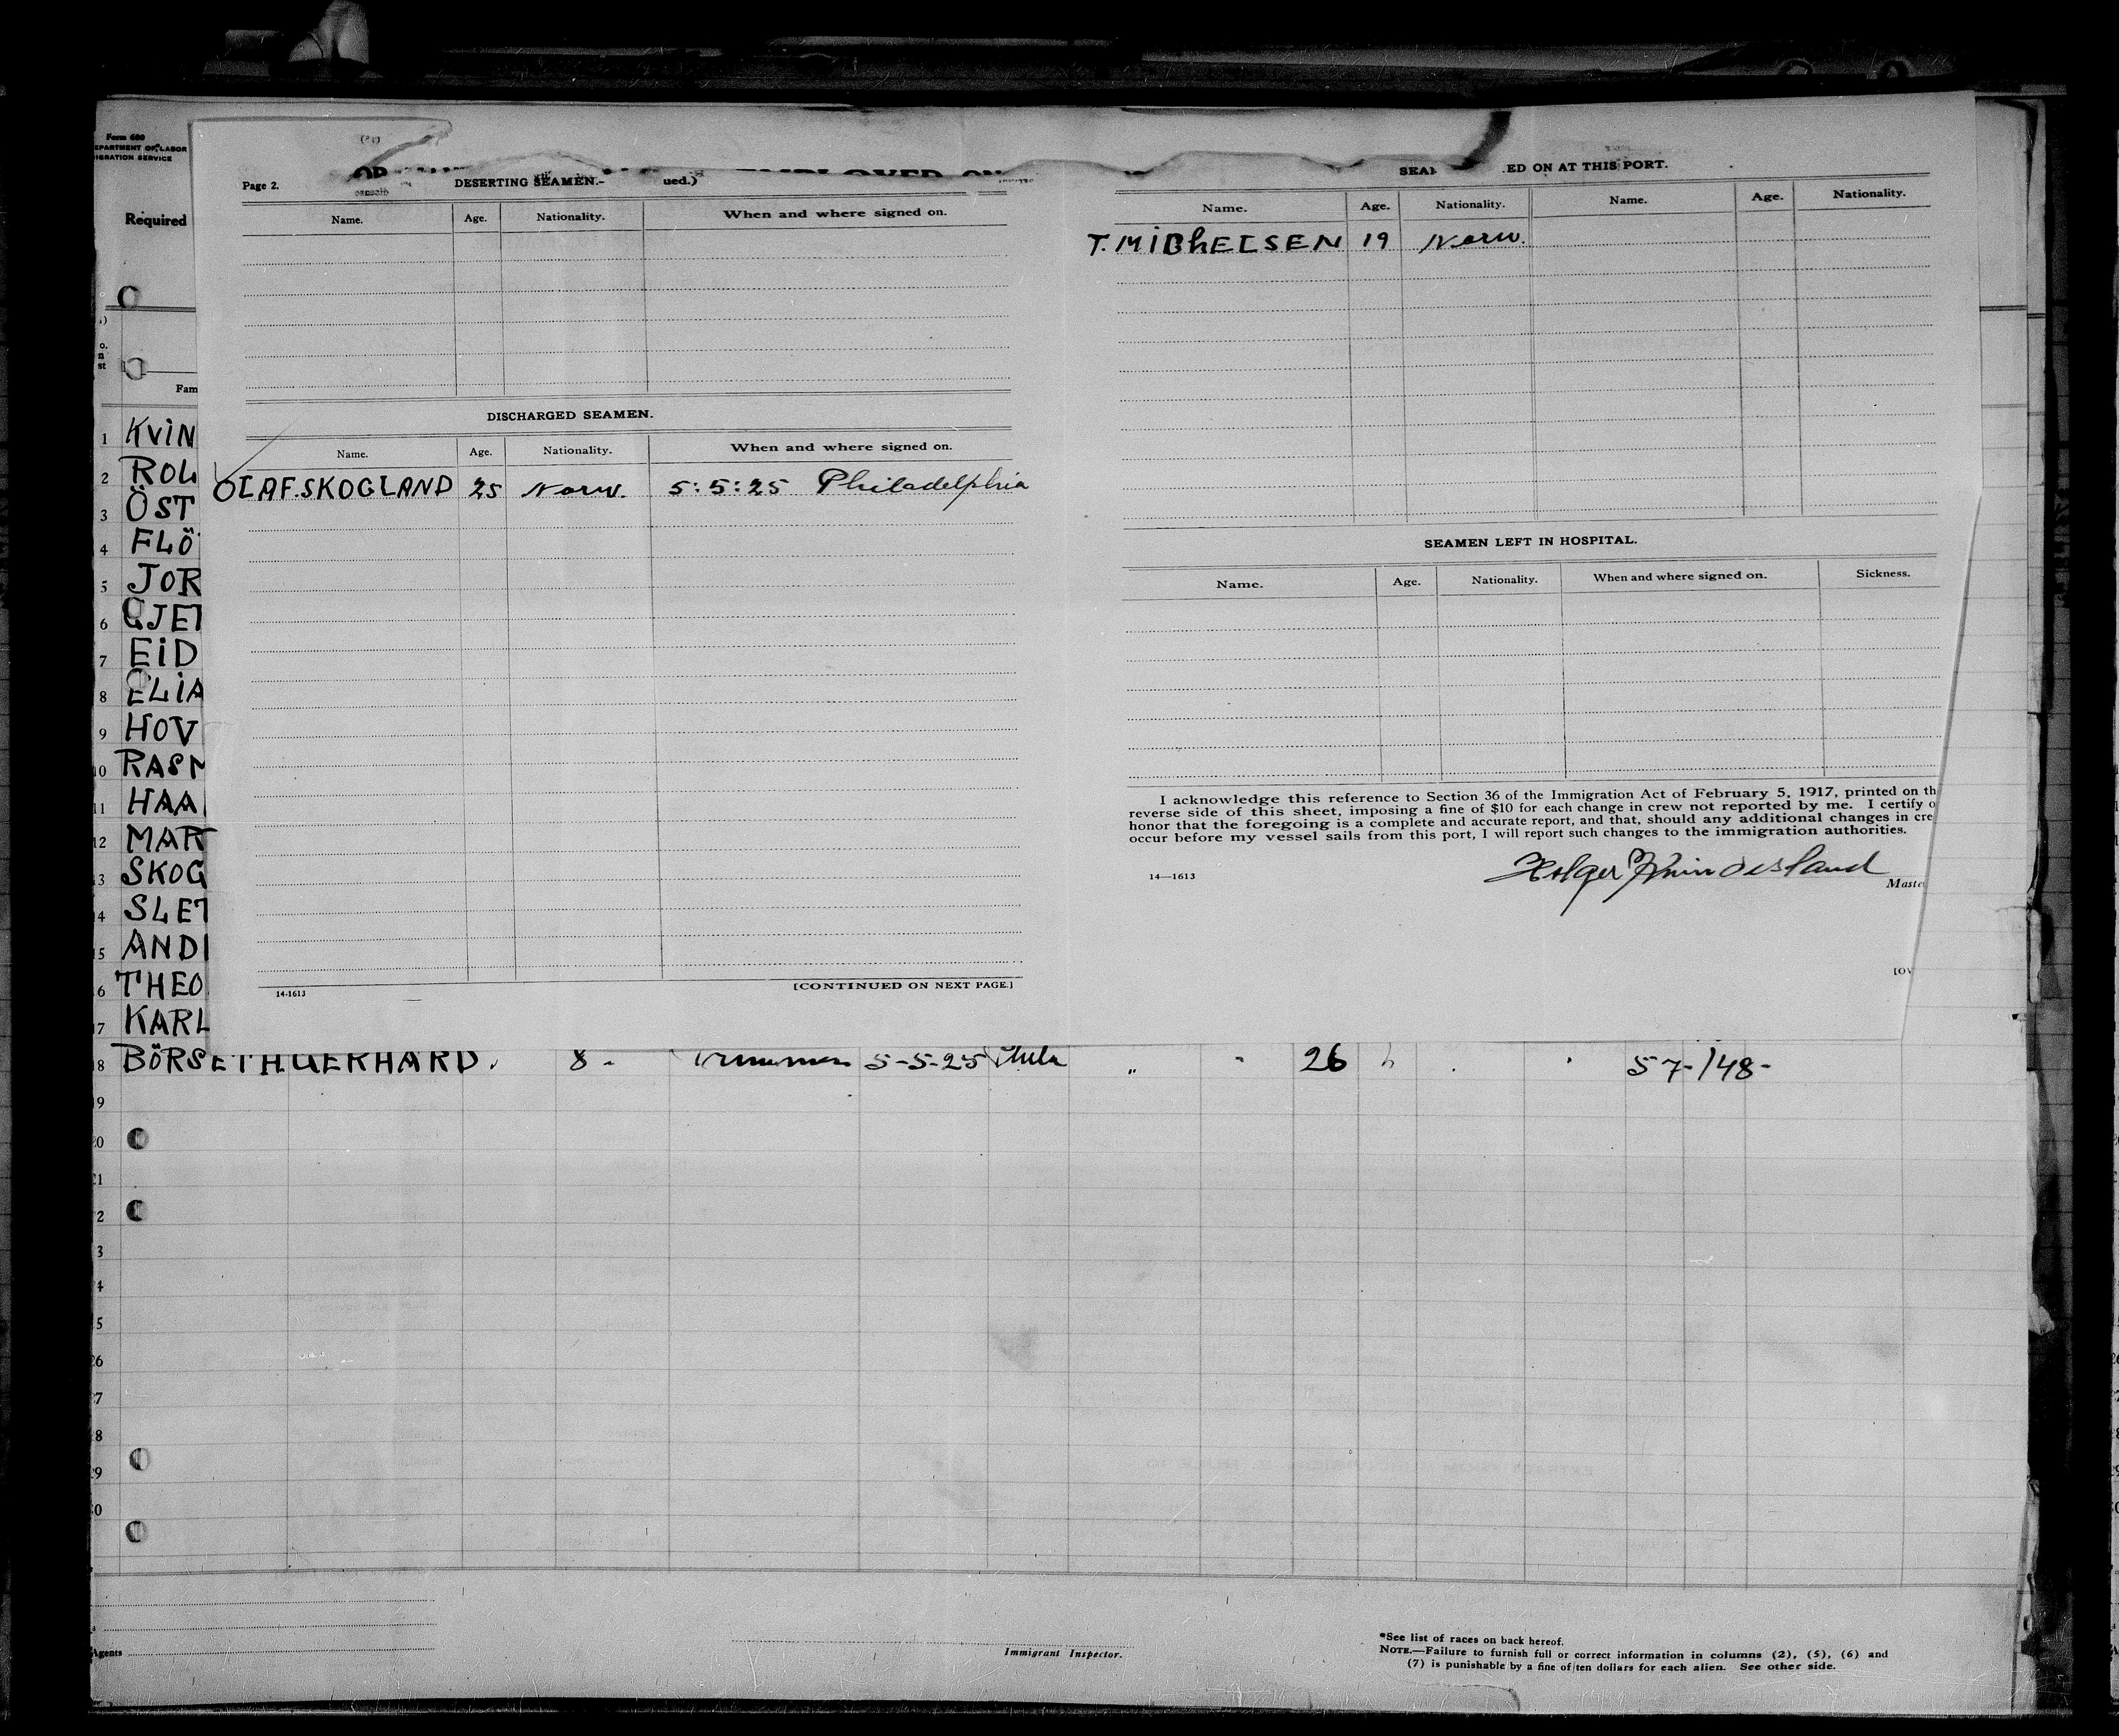 Form 680
EPARTMENT OF LABOR
IGRATION SERVICE
Required
Fam
1 KVIN
2 ROL
3 ÖST
4 FLÖ
5 JOR
6 GJET
7 EID
8 ELIA
9 HOV
10 RASM
11 HAA
12 MAR
3 SKOG
4 SLET
5 AND
6 THEO
7 KARL
8 BÖRSETH GERHARD. 8 - Trimmer 5-5-25 Phila " - 26 57-148-
9
20
21
2
3
4
5
26
27
28
29
30
Page 2.
DESERTING SEAMEN.- ued.)
Name. Age. Nationality. When and where signed on.
DISCHARGED SEAMEN.
Name. Age. Nationality. When and where signed on.
OLAF.SKOGLAND 25 Norw. 5:5:25 Philadelphia
14-1613 [CONTINUED ON NEXT PAGE.]
SEA ED ON AT THIS PORT.
Name. Age. Nationality. Name. Age. Nationality.
T. MICHELSEN 19 Norw.
SEAMEN LEFT IN HOSPITAL.
Name. Age. Nationality. When and where signed on. Sickness.
I acknowledge this reference to Section 36 of the Immigration Act of February 5, 1917, printed on th
reverse side of this sheet, imposing a fine of $10 for each change in crew not reported by me. I certify o
honor that the foregoing is a complete and accurate report, and that, should any additional changes in cre
occur before my vessel sails from this port, I will report such changes to the immigration authorities.
Holger
14—1613 Maste
[OV
Agents
Immigrant Inspector.
*See list of races on back hereof.
NOTE.—Failure to furnish full or correct information in columns (2), (5), (6) and
(7) is punishable by a fine of ten dollars for each alien. See other side.